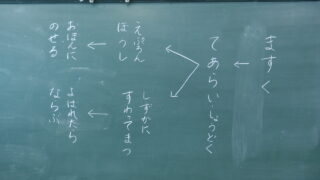 ますく
↓
てあらい・しょうどく
えぷろん
ぼうし
↓
おぼんに
のせる
しずかに
すわってまつ
↓
よばれたら
ならぶ